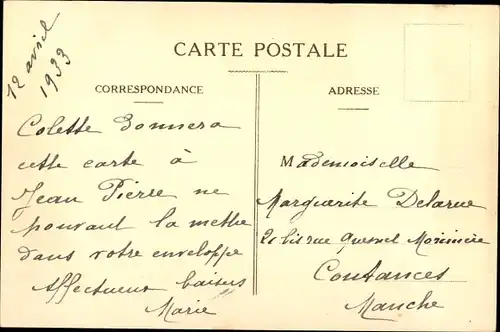 12 avril
1933
CARTE POSTALE
CORRESPONDANCE
Colette donnera
cette carte à
Jean Pierre ne
pouvant la mettre
dans votre enveloppe
Affectueux baisers
Marie
ADRESSE
Mademoiselle
Marguerite Delarue
21 bis rue Quesnel Morinière
Coutances
Manche